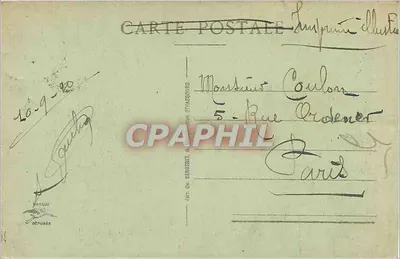 CARTE POSTALE
Imprimé illustré
16-9-20
Monsieur Coulon
5 - Rue Ordener
Paris
CPAPHIL